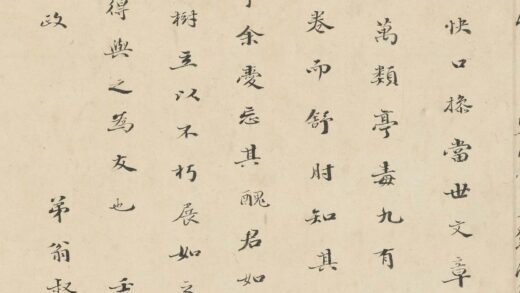 快口掾當世文章
萬類亭毒九有
卷而舒肘知其
余憂忘其醜君如
樹立以不朽展如之
得與之為友也 壬
政 弟翁叔